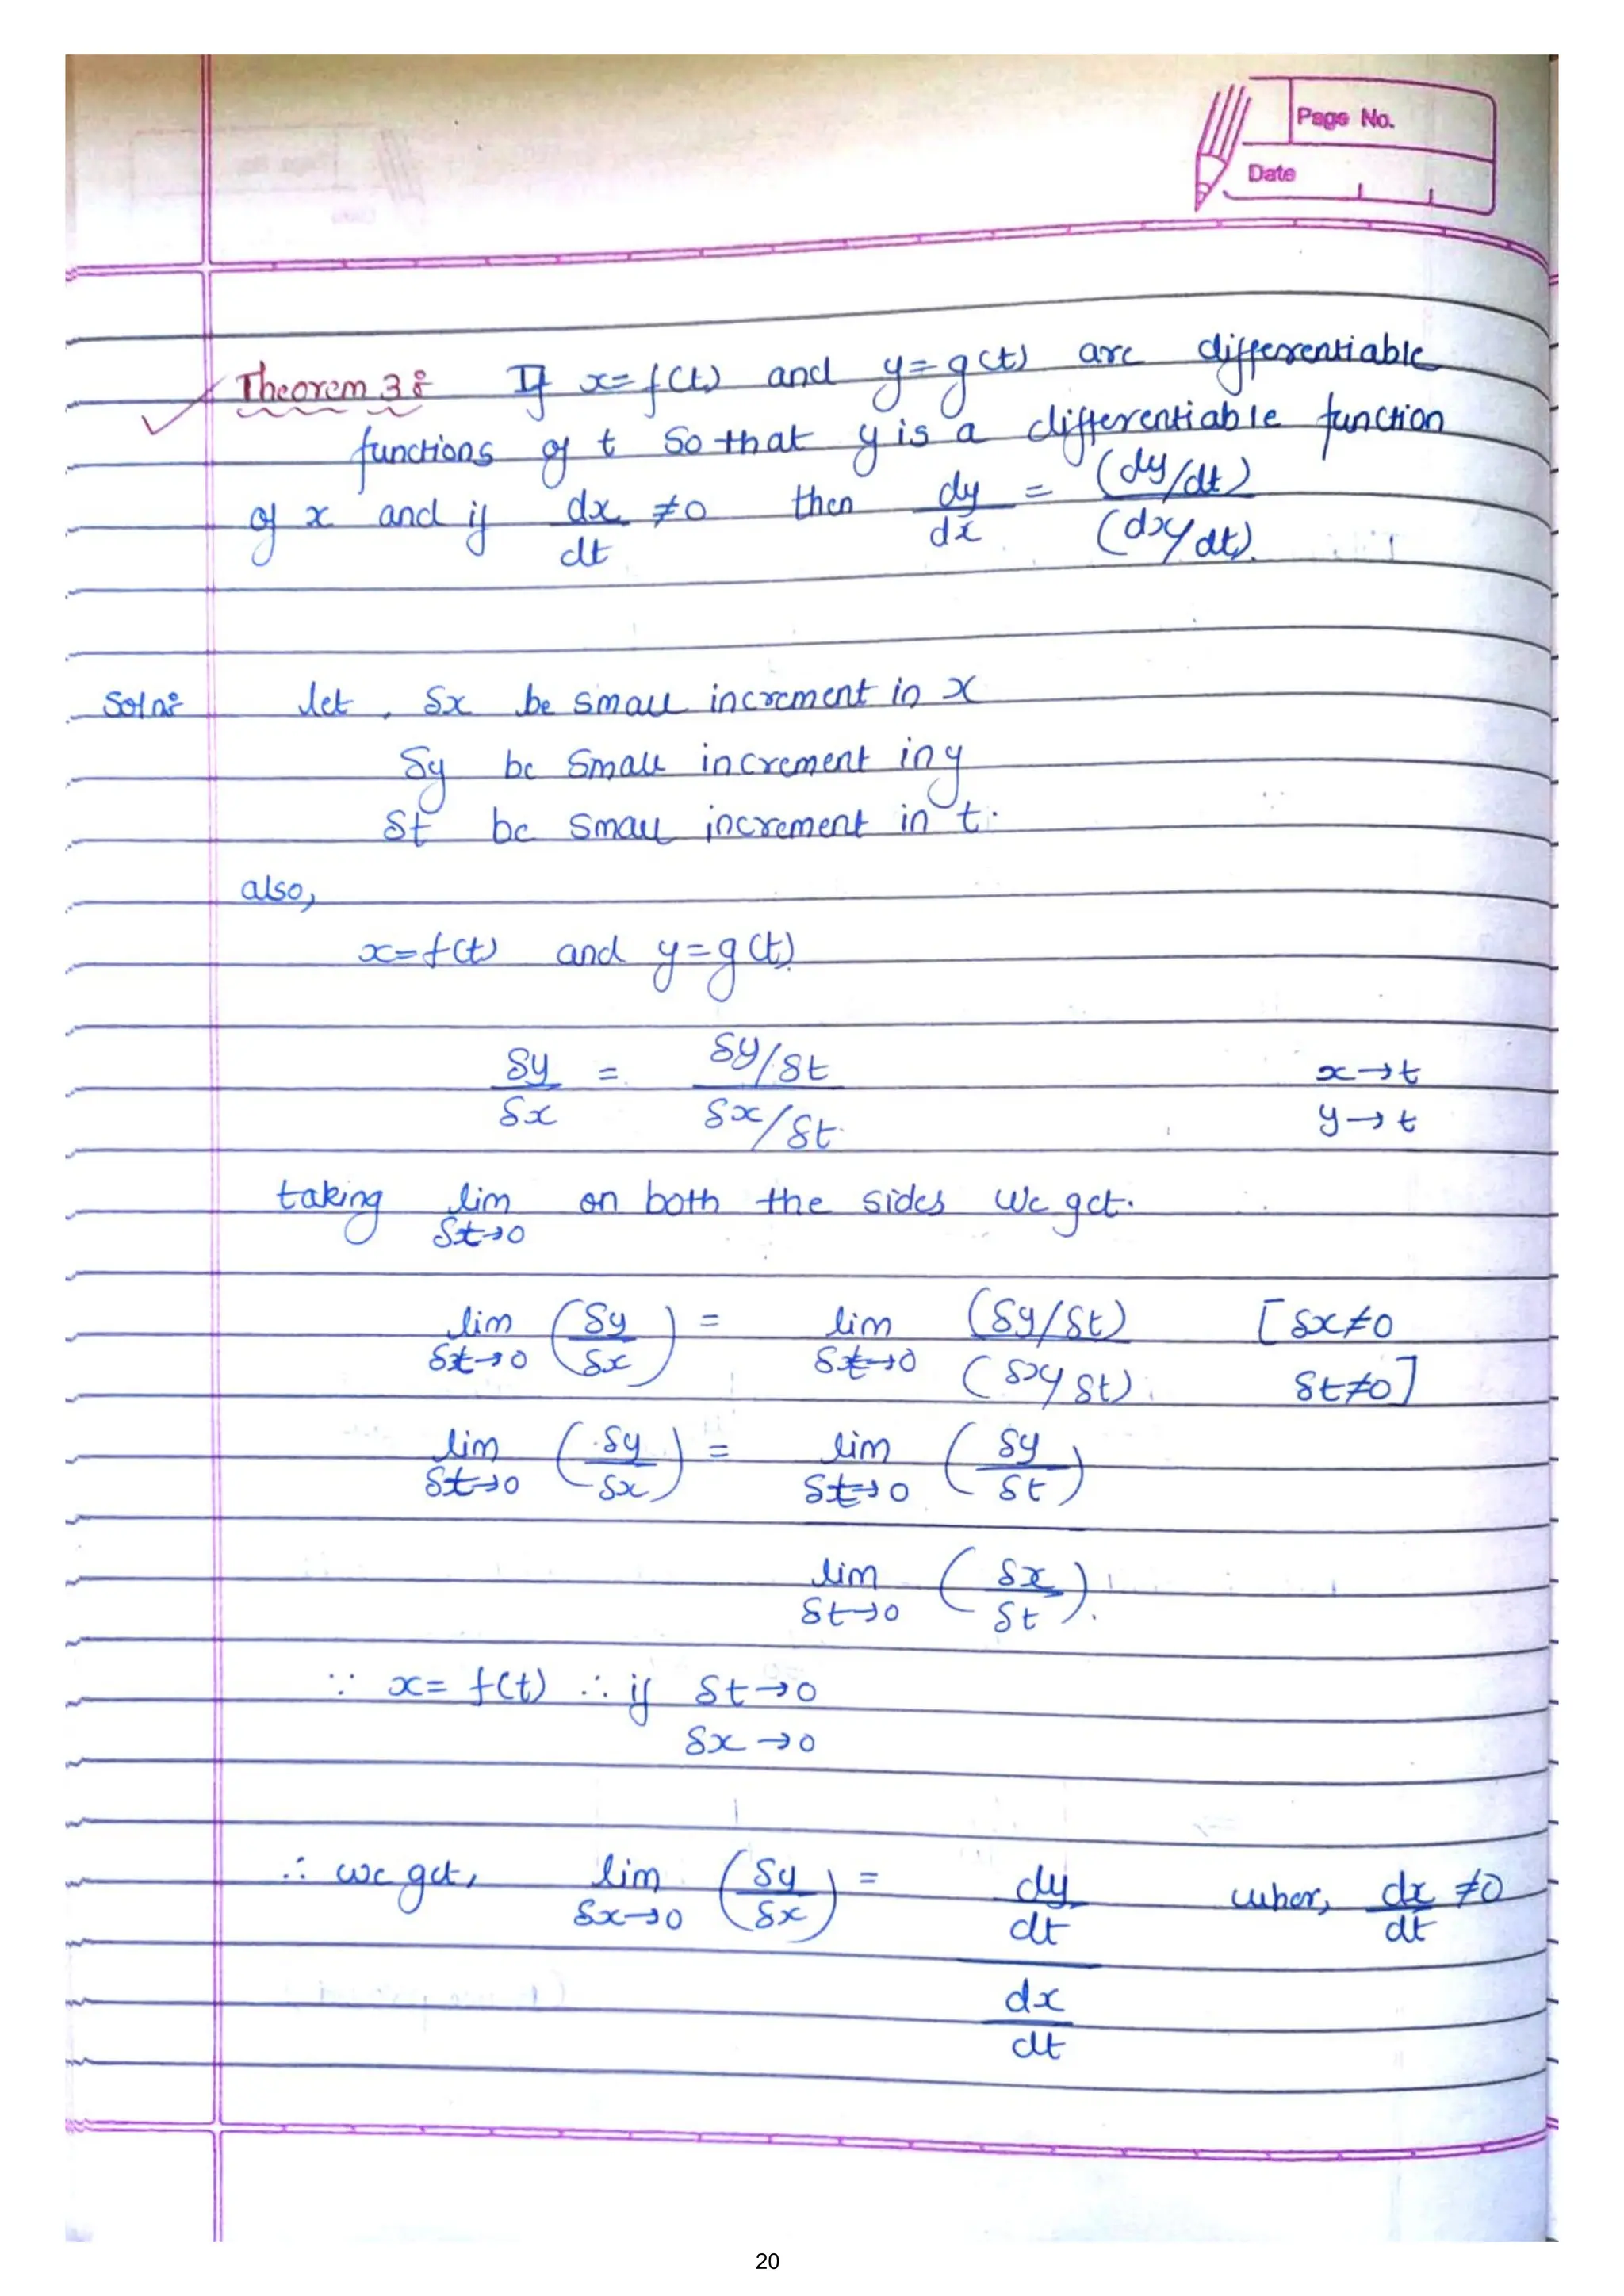 Page No.
Date
Theorem 3: If x=f(t) and y=g(t) are differentiable
functions of t so that y is a differentiable function
of x and if dx/dt ≠0 then dy/dx = (dy/dt)/(dx/dt).
Soln: let, δx be small increment in x
δy be small increment in y
δt be small increment in t.
also,
x=f(t) and y=g(t).
δy/δx = (δy/δt)/(δx/δt) x→t
y→t
taking lim δt→0 on both the sides we get.
lim δt→0 (δy/δx) = lim δt→0 (δy/δt)/(δx/δt) [δx≠0
δt≠0]
lim δt→0 (δy/δx) = lim δt→0 (δy/δt)
lim δt→0 (δx/δt).
∵ x= f(t) ∴ if δt→0
δx→0
∴ we get, lim δx→0 (δy/δx) = dy/dt wher, dx/dt ≠0
dx/dt
20